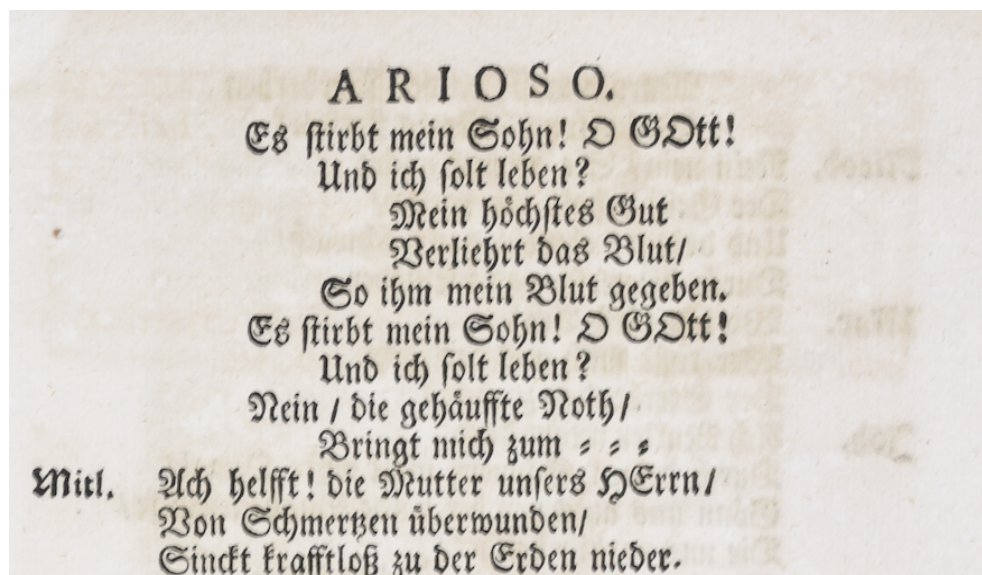 ARIOSO.
Es stirbt mein Sohn! O GOtt!
Und ich solt leben?
Mein höchstes Gut
Verliehrt das Blut/
So ihm mein Blut gegeben.
Es stirbt mein Sohn! O GOtt!
Und ich solt leben?
Nein / die gehäuffte Noth/
Bringt mich zum = = =
Mitl. Ach helfft! die Mutter unsers HErrn/
Von Schmertzen überwunden/
Sinckt krafftloß zu der Erden nieder.